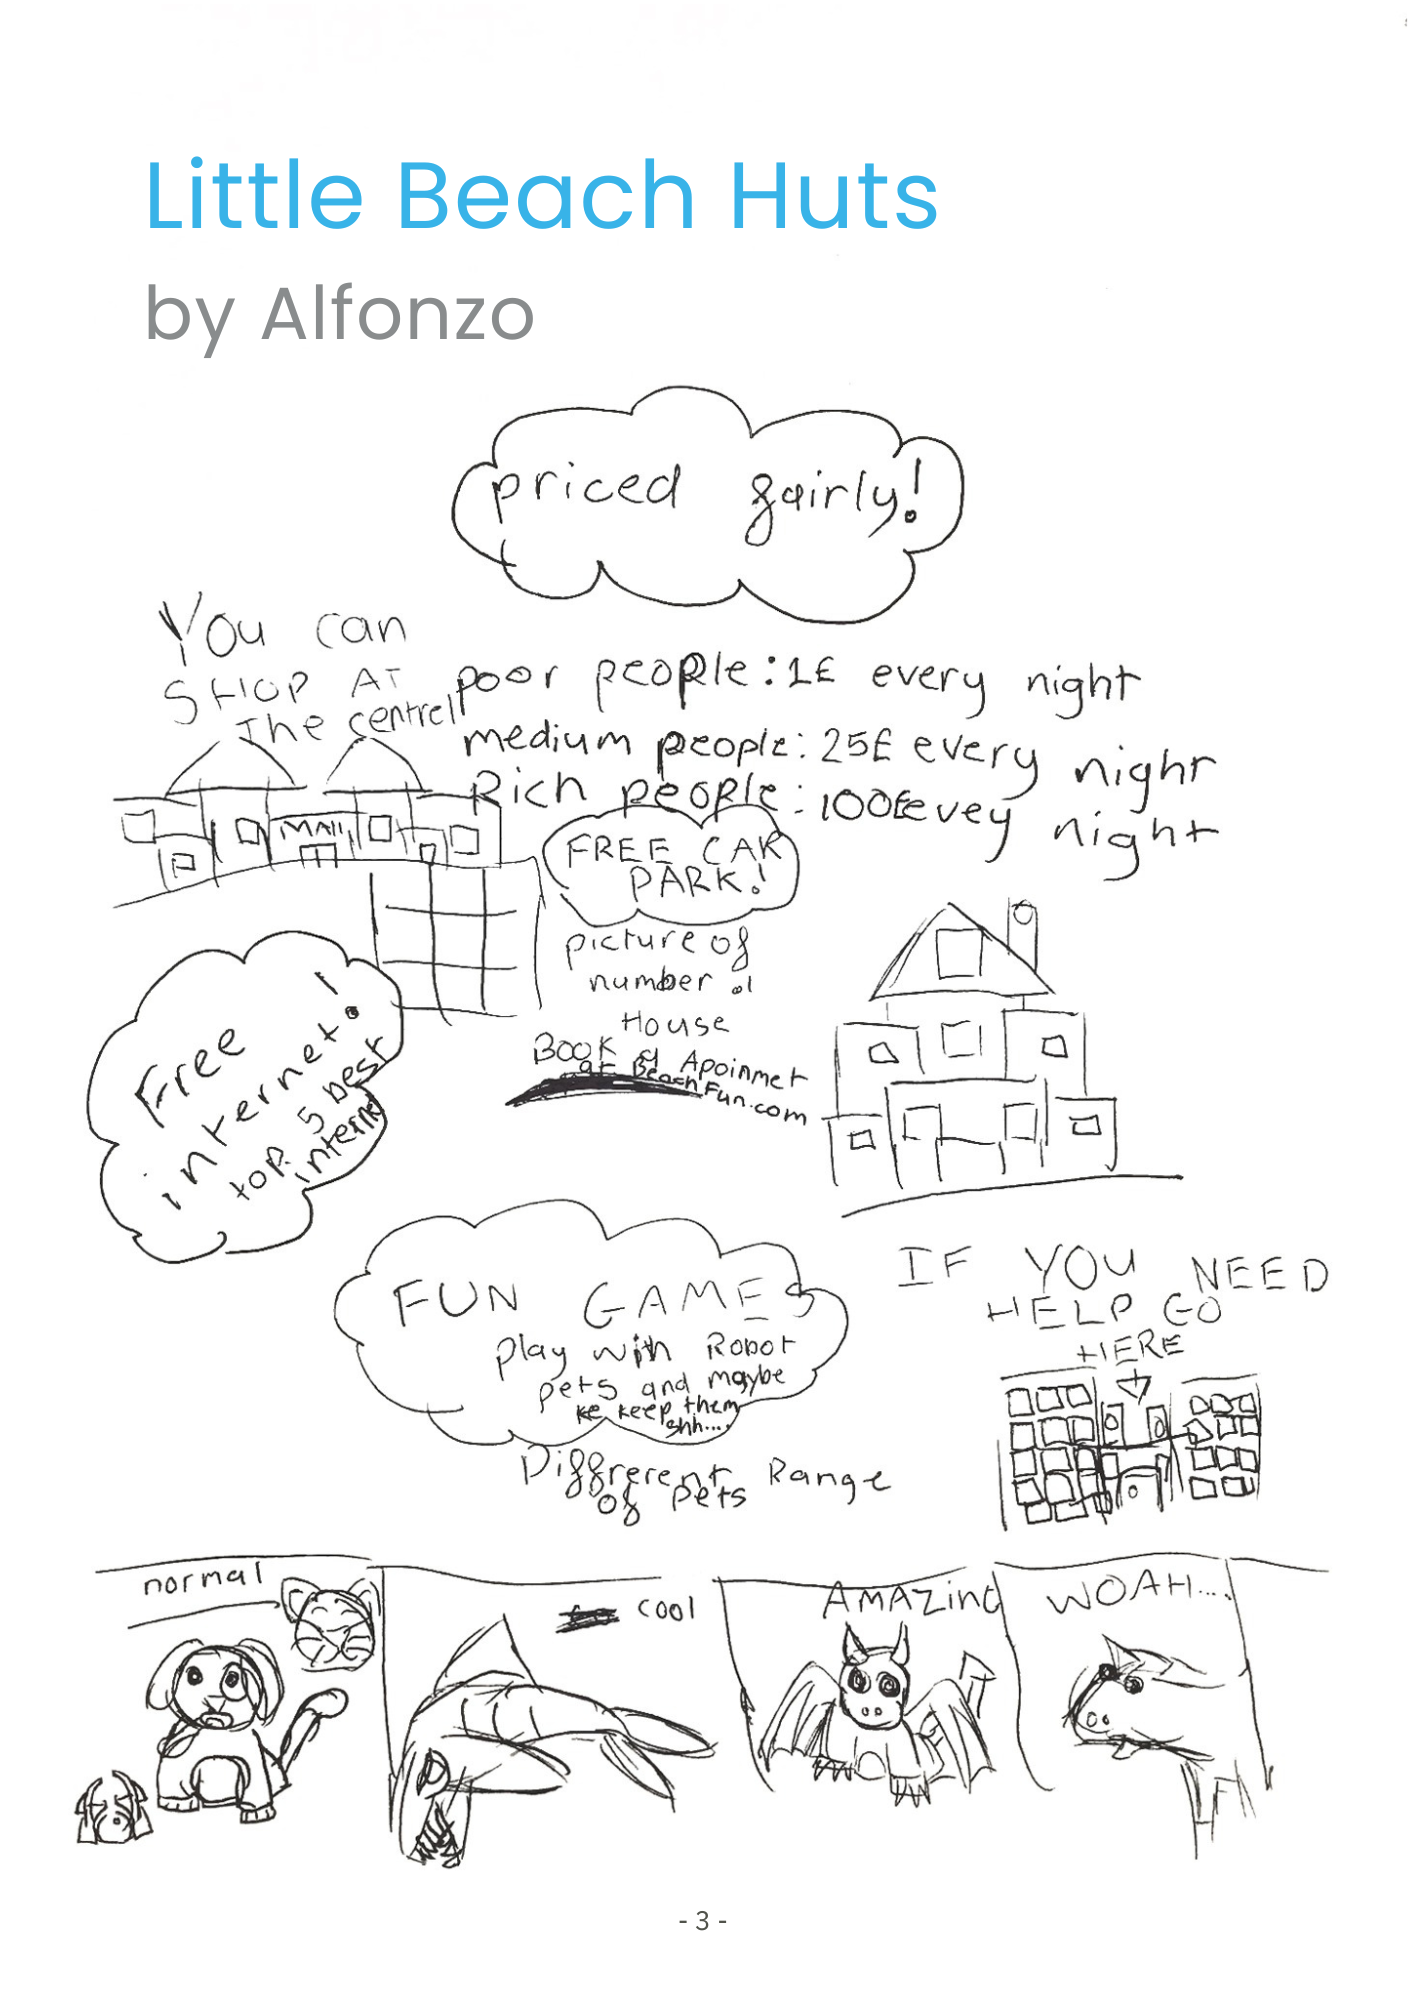 Little Beach Huts
by Alfonzo
priced fairly!
You can
SHOP AT
The centrell
MAll
poor people: 1£ every night
medium people: 25£ every night
Rich people: 100£ evey night
FREE CAR
PARK!
picture of
number 1
House
BOOK Apoinmet
at BeachFun.com
Free
internet!
top 5 best
internet
FUN GAMES
play with Robot
pets and maybe
keep them
shh....
Diffrerent Range
of pets
IF YOU NEED
HELP GO
HERE
normal
cool
AMAZinG
WOAH....
- 3 -